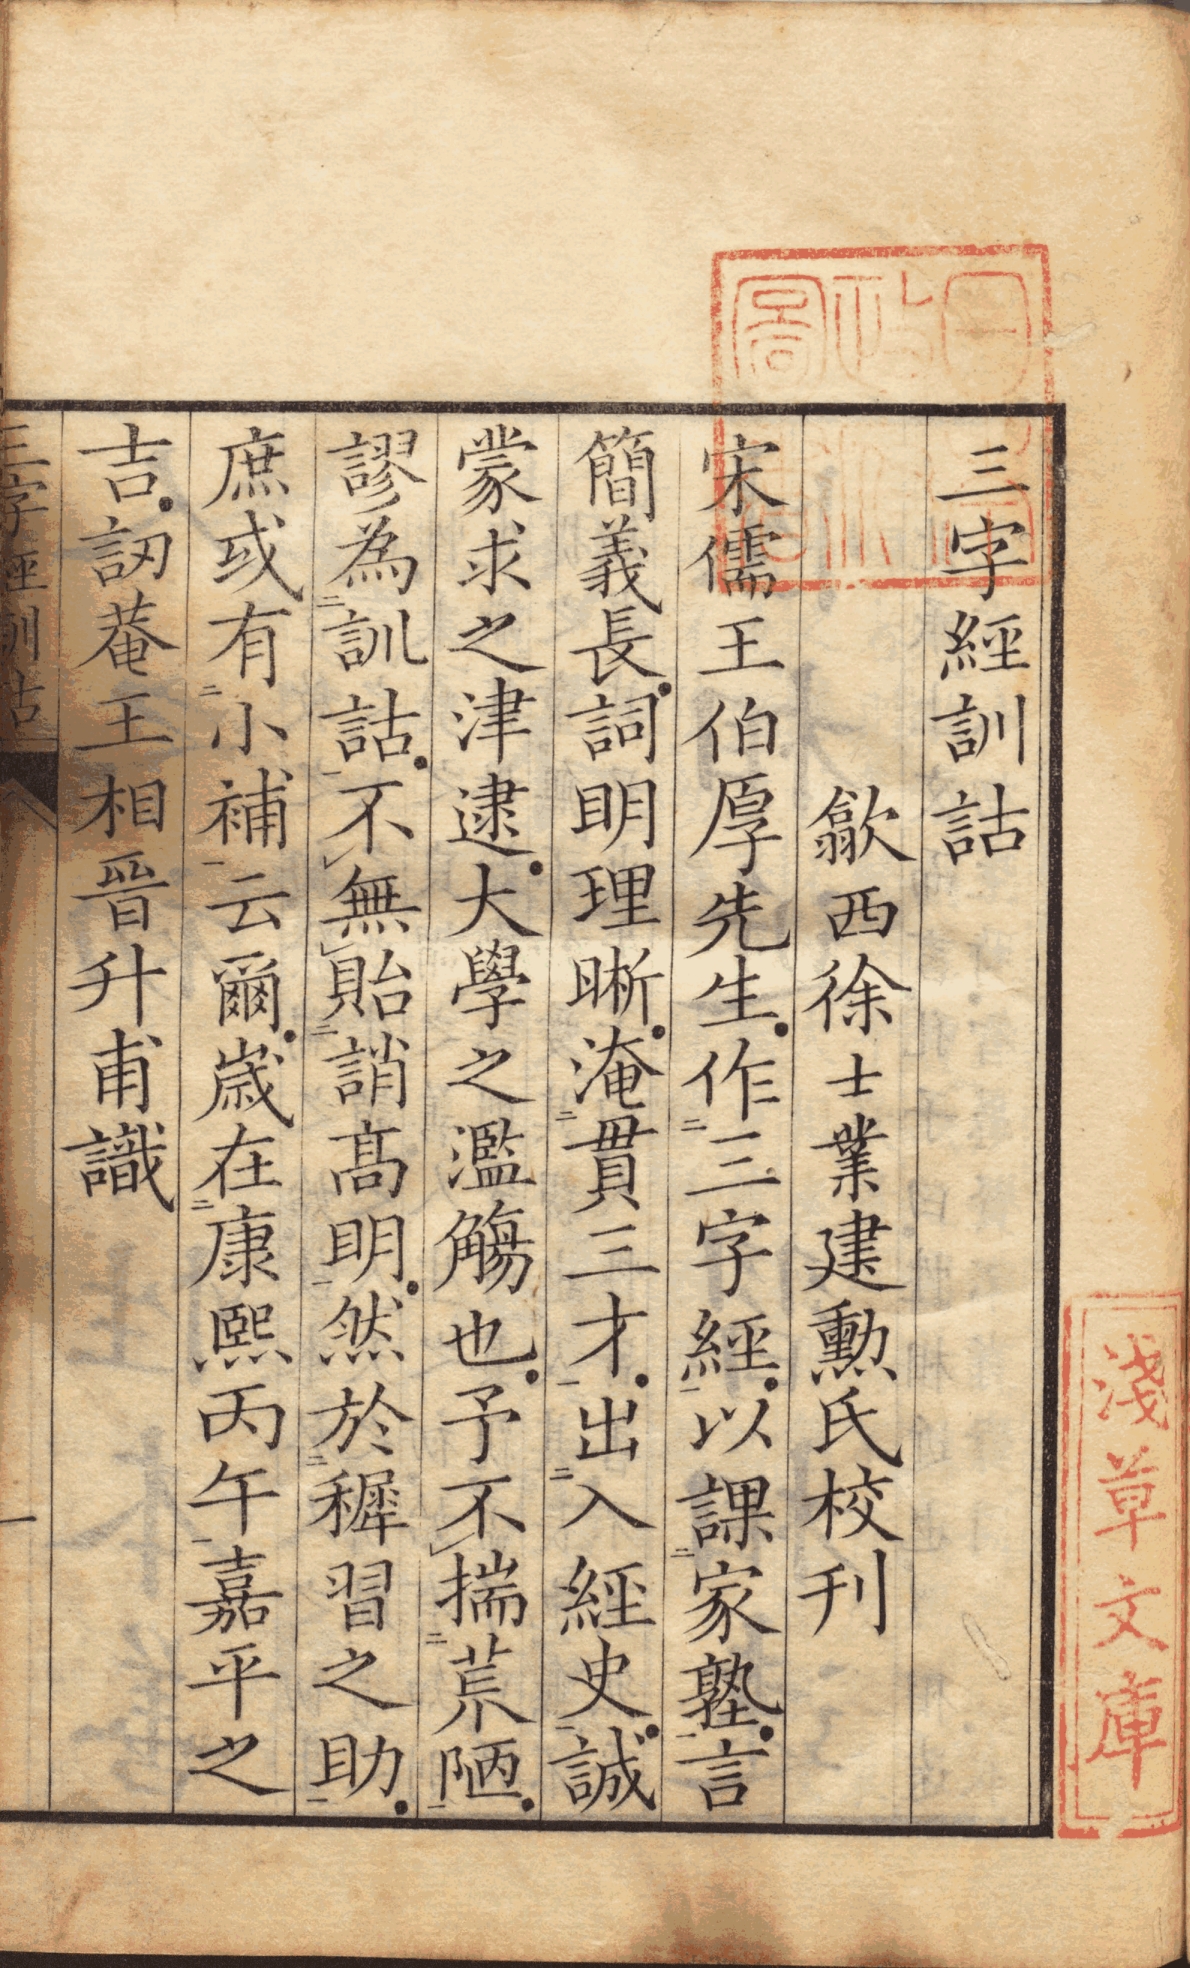 三字經訓詁
歙西徐士業建勲氏校刊
宋儒王伯厚先生作三字經以課家塾言
簡義長詞明理晰淹貫三才出入經史誠
蒙求之津逮大學之濫觴也予不揣荒陋
謬為訓詁不無貽誚髙明然於穉習之助
庶或有小補云爾嵗在康熙丙午嘉平之
吉訒菴王相晉升甫識
三字經訓詁
一
淺草文庫